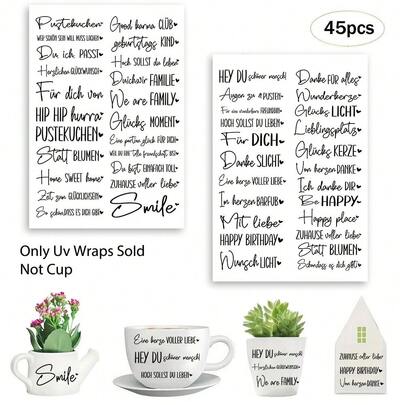 45pcs
Pustekuchen
WER SCHÖN SEIN WILL MUSS LACHEN
Du ich PASST
Herzlichen GLÜCKWUNSCH
Für dich von
HIP HIP hurra
PUSTEKUCHEN
Statt BLUMEN
Home SWEET home
Zeit zum GLÜCKLICHSEIN
Good karma GLÜB
geburtstags KIND
Hoch SOLLST du LEBEN
FAMILIE
We are FAMILY
Glücks MOMENT
Eine portion glück FÜR DICH
Du bist EINFACH TOLL
ZUHAUSE voller liebe
Smile
HEY DU schöner mensch!
Augen zu & PUSTEN
HOCH SOLLST DU LEBEN
Für DICH
Danke SLICHT
Eine kerze VOLLER LIEBE
In herzen BARFUB
Mit liebe
HAPPY BIRTHDAY
Wunsch LICHT
Danke FÜR alles
Wunderkerze
Glücks LICHT
Lieblingsplatz
Glücks KERZE
Von herzen DANKE
Ich danke DIR
Be HAPPY
Happy place
ZUHAUSE voller liebe
Statt BLUMEN
Schöndass es dich gibt
Only Uv Wraps Sold
Not Cup
Smile
Eine kerze VOLLER LIEBE
HEY DU schöner mensch!
HOCH SOLLST DU LEBEN
HEY DU schöner mensch!
Herzlichen GLÜCKWUNSCH
We are FAMILY
ZUHAUSE voller liebe
HAPPY BIRTHDAY
Von herzen DANKE